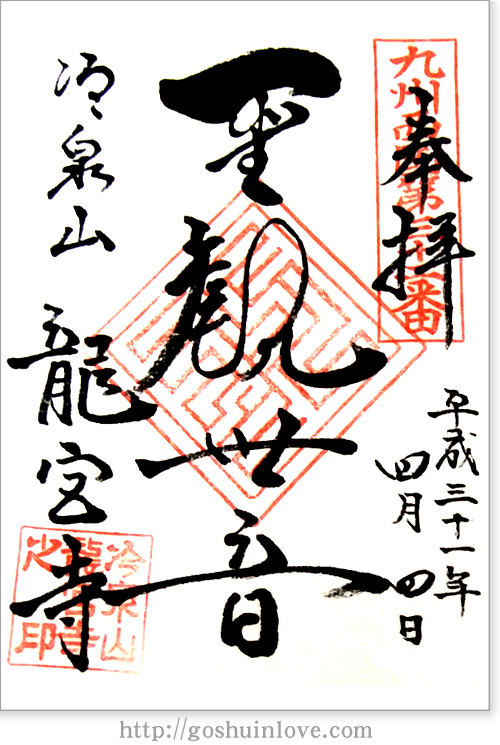 奉拝
九州西国第三十二番
平成三十一年
四月四日
聖観世音
冷泉山
龍宮寺
冷泉山
龍宮寺
之印
http://goshuinlove.com